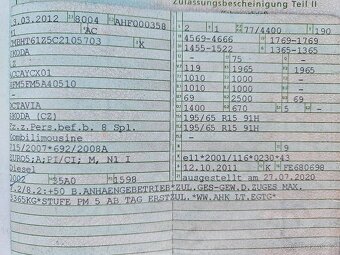 Zulassungsbescheinigung Teil II
3.03.2012 8004 AHF000358
AC
TMBHT61Z5C2105703 K
SKODA
1Z
ACCAYCX01
FM5FM5A40510
OCTAVIA
SKODA (CZ)
Fz.z.Pers.bef.b. 8 Spl.
Kombilimousine
715/2007*692/2008A
EURO5;A;PI/CI; M, N1 I
Diesel
0002 35A0 1598
7.2/8.2:+50 B.ANHAENGEBETRIEB*ZUL.GES-GEW.D.ZUGES MAX.
3365KG*STUFE PM 5 AB TAG ERSTZUL.*WW.AHK LT.EGTG*
2 1 77/4400 190
4569-4666 1769-1769
1455-1522 1365-1365
- 75 -
119 1965 1965
1010 1000 -
1010 1000 -
69 2500 69
1400 670 5 -
195/65 R15 91H
195/65 R15 91H
-
- 9
e11*2001/116*0230*43
12.10.2011 K FE680698
ausgestellt am 27.07.2020